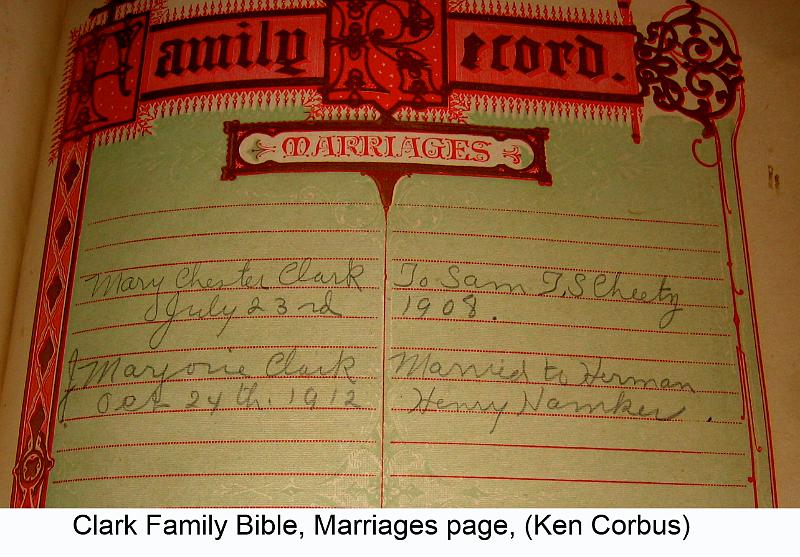 Family Record.
MARRIAGES
Mary Chester Clark To Sam T, S Cheety
July 23rd 1908.
Marjorie Clark Married to Herman
Oct 24th. 1912 Henry Namker.
Clark Family Bible, Marriages page, (Ken Corbus)